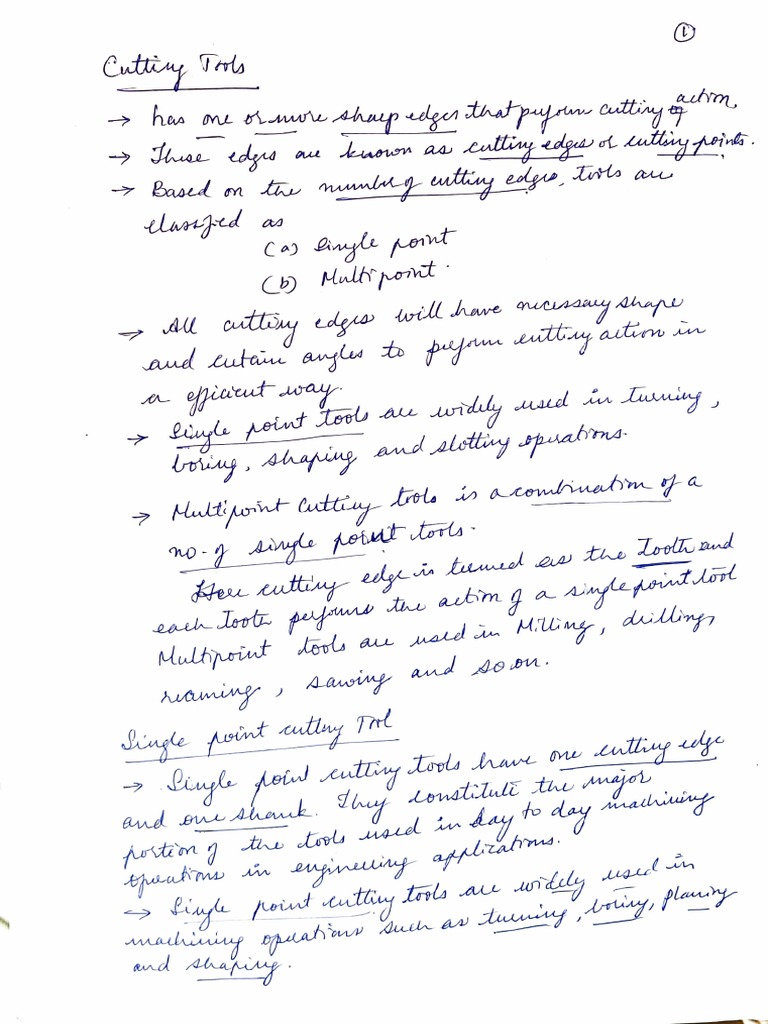 1
Cutting Tools
→ has one or more sharp edges that perform cutting action.
→ These edges are known as cutting edges or cutting points.
→ Based on the number of cutting edges, tools are
classified as
(a) Single point
(b) Multipoint.
→ All cutting edges will have necessary shape
and certain angles to perform cutting action in
a efficient way.
→ Single point tools are widely used in turning,
boring, shaping and slotting operations.
→ Multipoint cutting tools is a combination of a
no. of single point tools.
Here cutting edge is termed as the Tooth and
each Tooth performs the action of a single point tool
Multipoint tools are used in Milling, drilling,
reaming, sawing and so on.
Single point cutting Tool
→ Single point cutting tools have one cutting edge
and one shank. They constitute the major
portion of the tools used in day to day machining
operations in engineering applications.
→ Single point cutting tools are widely used in
machining operations such as turning, boring, planing
and shaping.